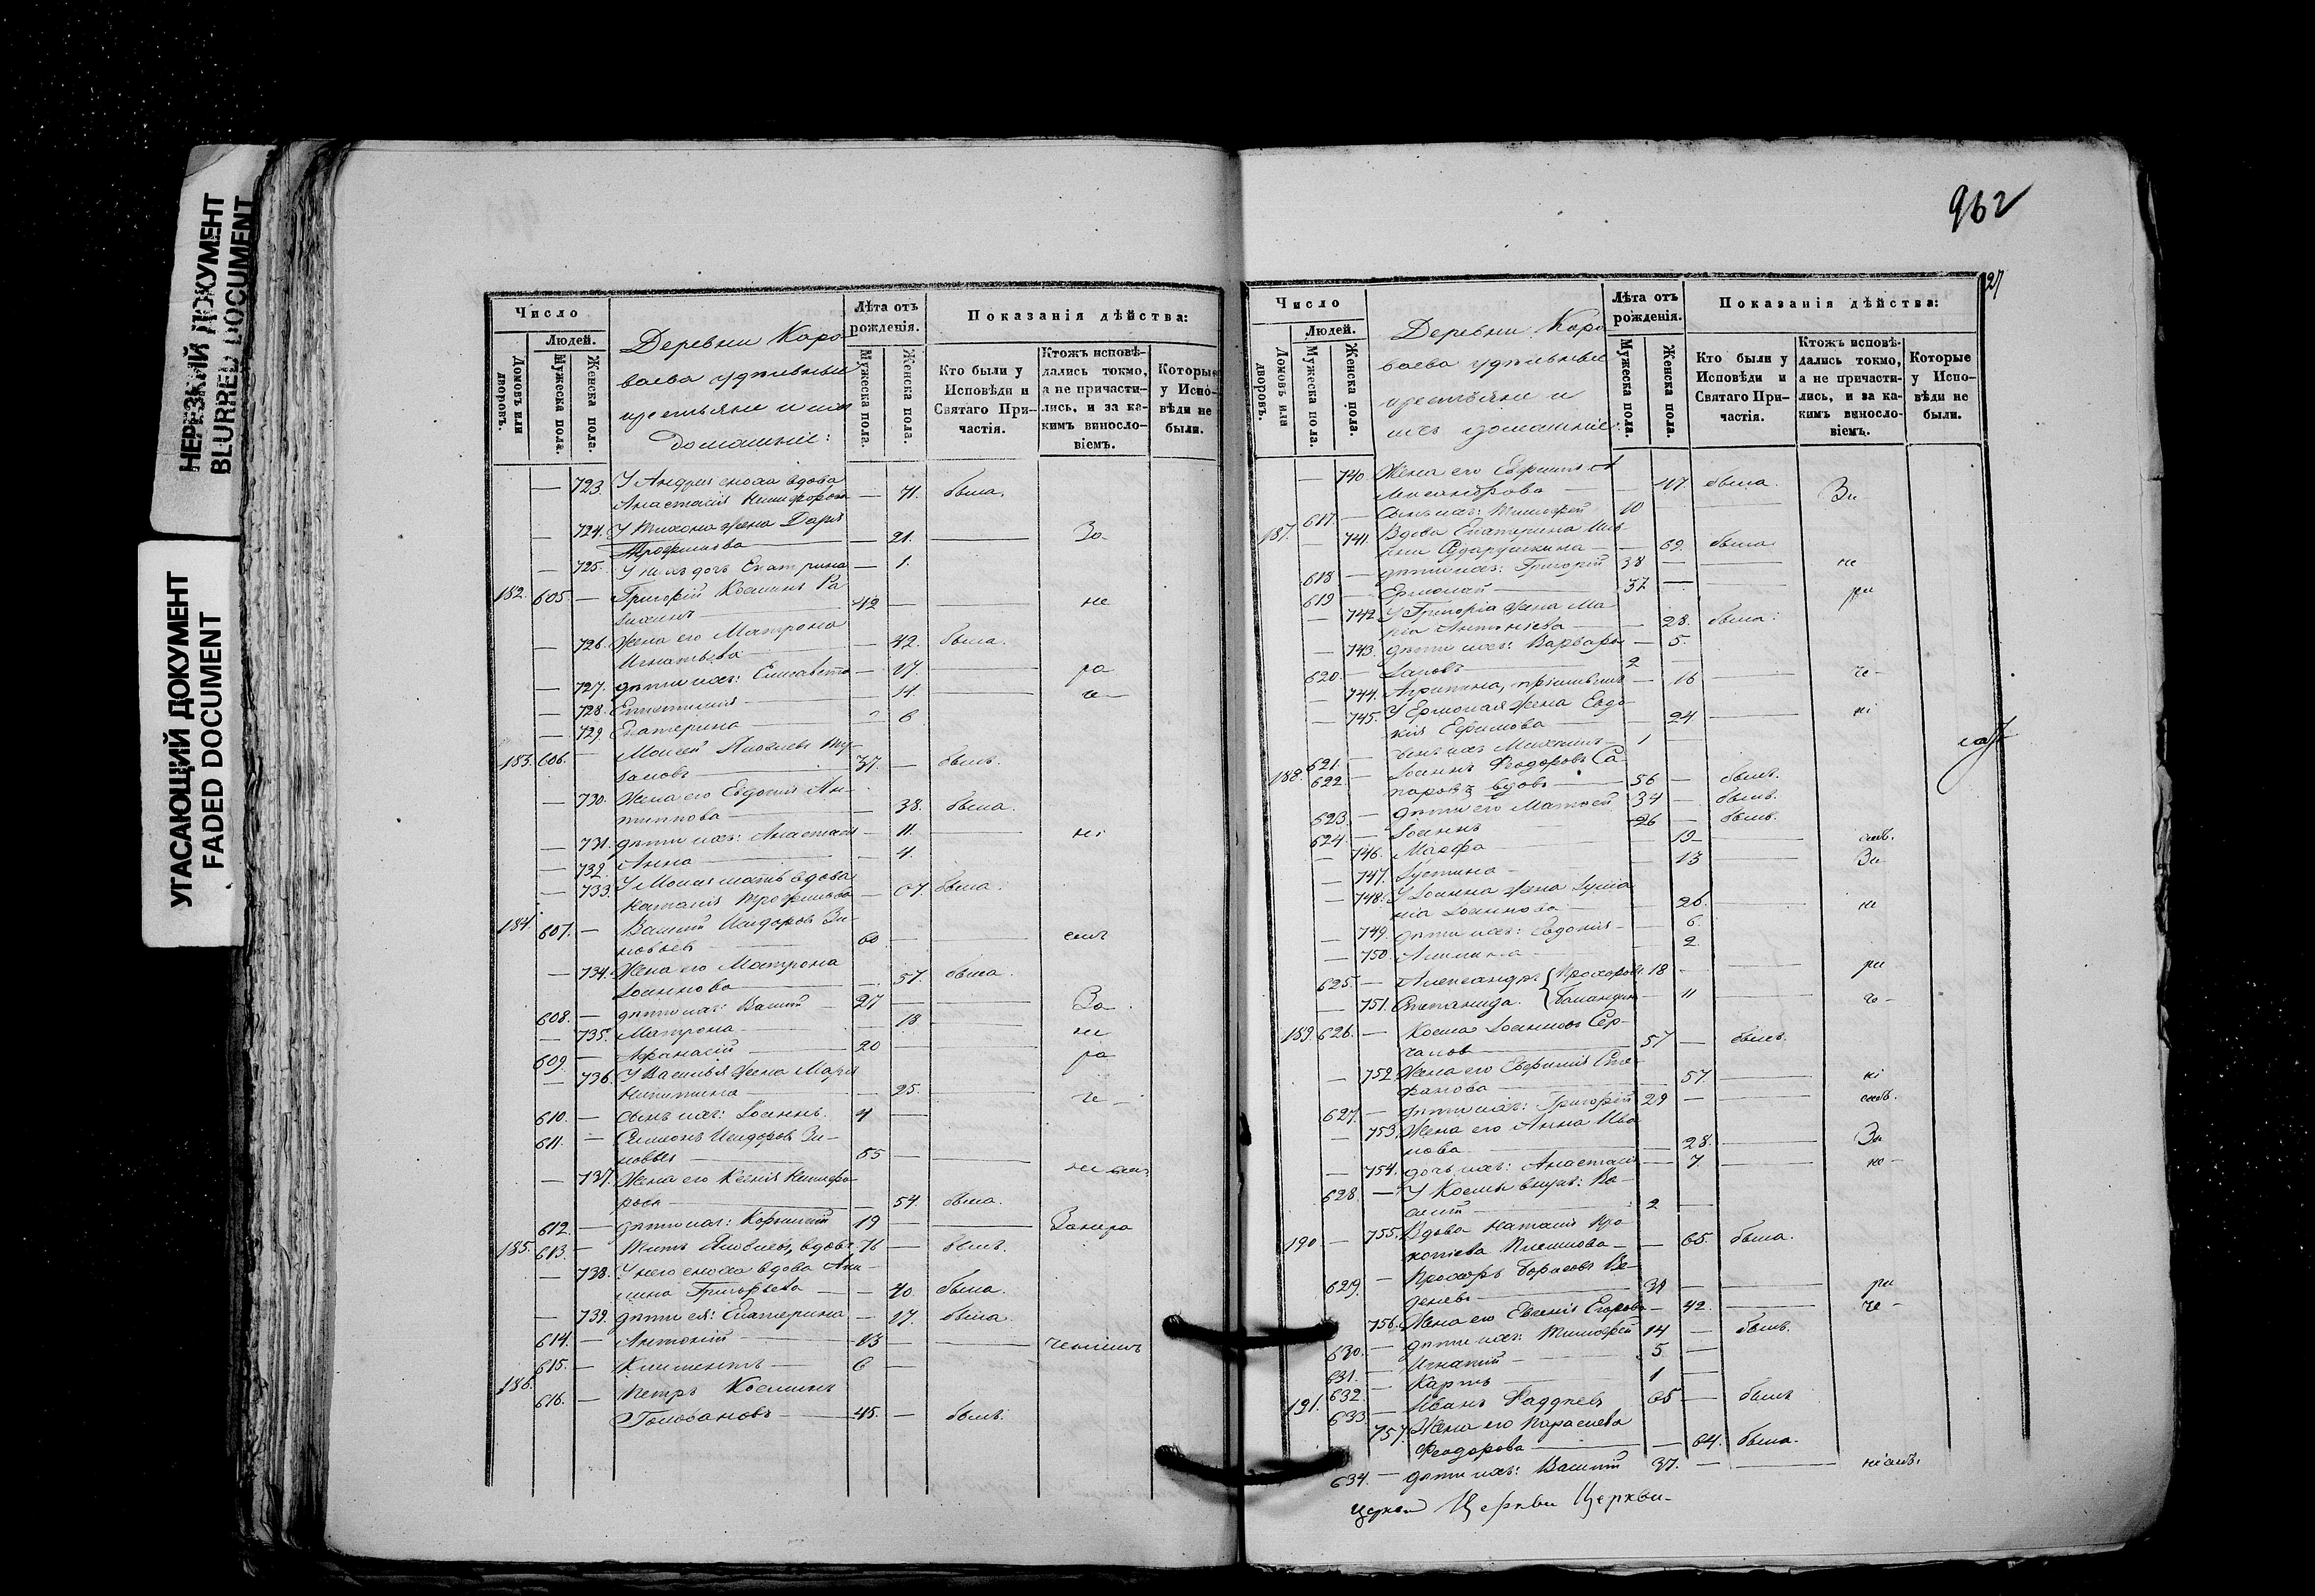 НЕРЕЗКИЙ ДОКУМЕНТ
BLURRED DOCUMENT
УГАСАЮЩИЙ ДОКУМЕНТ
FADED DOCUMENT
Число
Домовъ или дворовъ.
Людей.
Мужеска пола.
Женска пола.
Деревни Каро-
ваева удѣльные
крестьяне и ихъ
домашніе:
Лѣта отъ рожденія.
Мужеска пола.
Женска пола.
Показанія дѣйства:
Кто были у Исповѣди и Святаго При-частія.
Ктожъ исповѣ-дались токмо, а не причасти-лись, и за ка-кимъ винносло-віемъ.
Которые у Испо-вѣди не были.
— 723. У Андрея сноха вдова
Анастасія Никифорова — 71. была.
— 724. У Тихона жена Дарья
Трофимова — 21. — За
— 725. У нихъ дочь Екатерина — 1.
182. 605. — Григорій Косминъ
42 — — не
— 726. Жена его Матрона
Игнатьева — 42. была.
— 727. дѣти ихъ: Елисавета — 17. — ра
— 728. — 11 — че-
— 729. Екатерина 6
183. 606. — Моисей Яковлевъ
37. — былъ.
— 730. Жена его Евдокія Ан-
типпова — 38. была.
— 731. дѣти ихъ: Анастасія — 11. — ні
— 732. Анна — 4.
— 733. У Моисея мать вдова
Наталія Трофимова — 67. была.
184. 607. — Василій Исидоровъ Зи-
новьев 60 — — емъ
— 734. Жена его Матрона
Іоаннова — 57. была.
608. — дѣти ихъ: Василій — 27 — — За
— 735. Матрона — 18 — не
609. — Афанасій — 20 — — ра
— 736. У Василья жена Марія
Никитина — 25. — че-
610. — сынъ ихъ: Іоаннъ. 4 —
611. — Симеонъ Исидоровъ Зи-
новьев — 55 — — ніемъ
— 737. Жена его Ксенія Никифо-
рова — 54. была.
612. — дѣти ихъ: Корнилій 19 — — Занера
185. 613. — Титъ Яковлевъ, вдовъ 76 — былъ.
— 738. У него сноха вдова Аки-
лина Григорьева — 40. была.
— 739. дѣти ея: Екатерина — 17. была.
614. — Антоній — 13 — — ченіемъ
615. — Климентъ — 6 —
186. 616. — Петръ Косминъ
Головановъ — 45. — былъ.
962
27
Число
Домовъ или дворовъ.
Людей.
Мужеска пола.
Женска пола.
Деревни Каро-
ваева удѣльные
крестьяне и
ихъ домашніе.
Лѣта отъ рожденія.
Мужеска пола.
Женска пола.
Показанія дѣйства:
Кто были у Исповѣди и Святаго При-частія.
Ктожъ исповѣ-дались токмо, а не причасти-лись, и за ка-кимъ винносло-віемъ.
Которые у Испо-вѣди не были.
— 740. Жена его
— 47. была.
617. — Сынъ ихъ: Тимофей 10 — За
187. — 741. Вдова Екатерина
Сударушкина — 69. была.
618 — дѣти ихъ: Григорій 38 — — не
619 — Ермолай — 37 — — ра
— 742 У Григорія жена Ма-
рія — 28. была.
— 743. дѣти ихъ: Варвара — 5.
620. — Іаковъ 2 —
— 744. Агрипина, — 16 — че-
— 745. У Ермолая жена Евдо-
кія Ефимова — 24 — ні
621. — сынъ ихъ Михаилъ 1 —
188. 622. — Іоаннъ Ѳеодоровъ
вдовъ 56 — былъ.
623. — дѣти его Матѳей 34 — былъ.
624. — Іоаннъ 26 — былъ.
— 746. Марѳа — 19 — емъ.
— 747. Іустина — 13 — За
— 748. У Іоанна жена Іулiа-
нiа Іоаннова — 26. — не
— 749. дѣти ихъ: Евдокія — 6.
— 750. Акилина — 2.
625. — Александръ Прохоровы 18 — — ра
— 751. Степанида. — 11 — че-
189. 626. — Косма Іоанновъ
57 — былъ.
— 752 Жена его Евфимія Сте-
фанова — 57. — ні
627. — дѣти ихъ: Григорій 29 — — емъ.
— 753. Жена его Анна Ива-
нова — 28. — За
— 754. дочь ихъ: Анастасія — 7. — не-
628. — У Космы внукъ: Ва-
силій 2 —
190. — 755. Вдова Наталія Про-
копіева — 65. была.
629. — Прохоръ Борисовъ
39 — — ра
756. Жена его Евгенія Егорова — 42. — че-
630. — дѣти ихъ: Тимофей 14 — былъ.
631. — Игнатій — 5. —
632. — Карпъ — 1 —
191. 633. — Иванъ Фаддѣевъ 65 — былъ
757. Жена его Параскева
Ѳеодорова — 64. была.
634. — дѣти ихъ: Василій 37. — — ніемъ.
Церкви Церкви